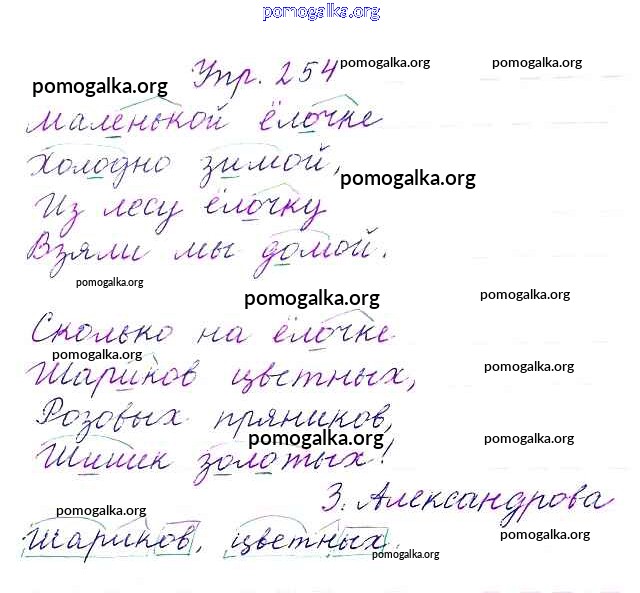 pomogalka.org
Упр. 254
pomogalka.org
pomogalka.org
pomogalka.org
маленькой ёлочке
Холодно зимой,
pomogalka.org
Из лесу ёлочку
Взяли мы домой.
pomogalka.org
pomogalka.org
pomogalka.org
Сколько на ёлочке
pomogalka.org
Шариков цветных,
pomogalka.org
Розовых пряников,
pomogalka.org
pomogalka.org
Шишек золотых!
З. Александрова
pomogalka.org
pomogalka.org
Шариков, цветных.
pomogalka.org